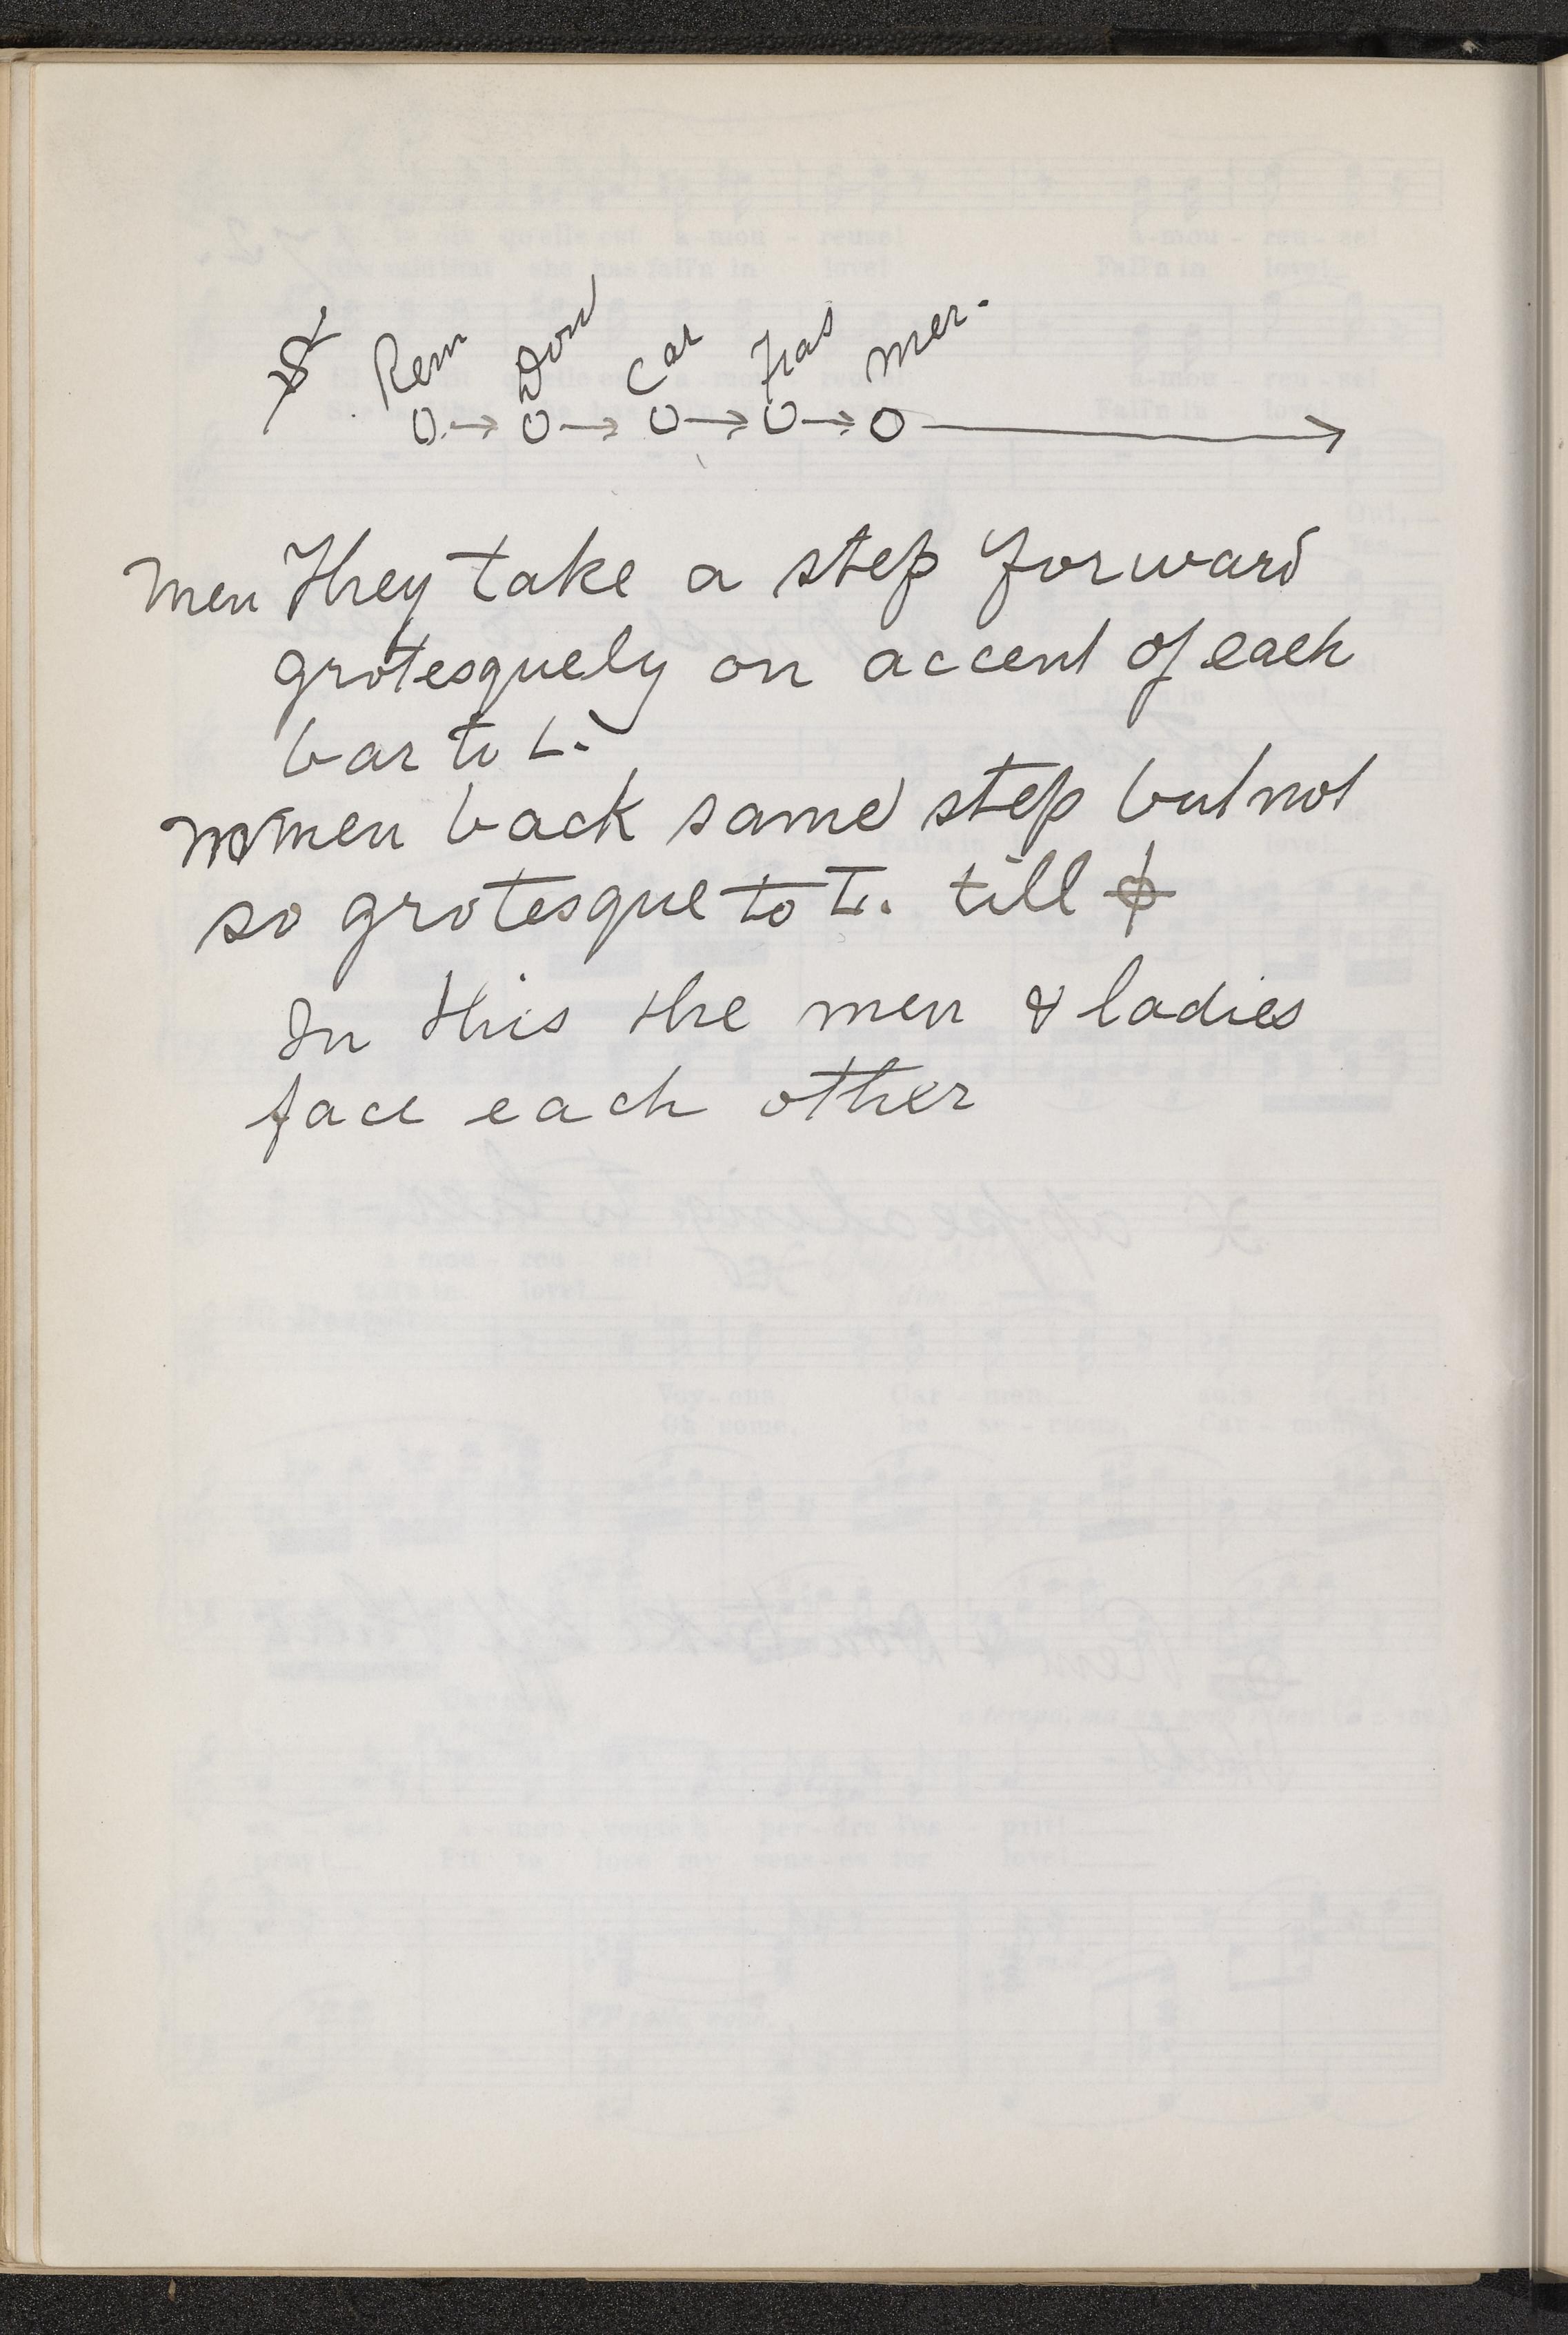 Rem Don Car Fras Mer.
Men They take a step forward
grotesquely on accent of each
bar to L.
Women back same step but not
so grotesque to L. till ϕ
In this the men & ladies
face each other